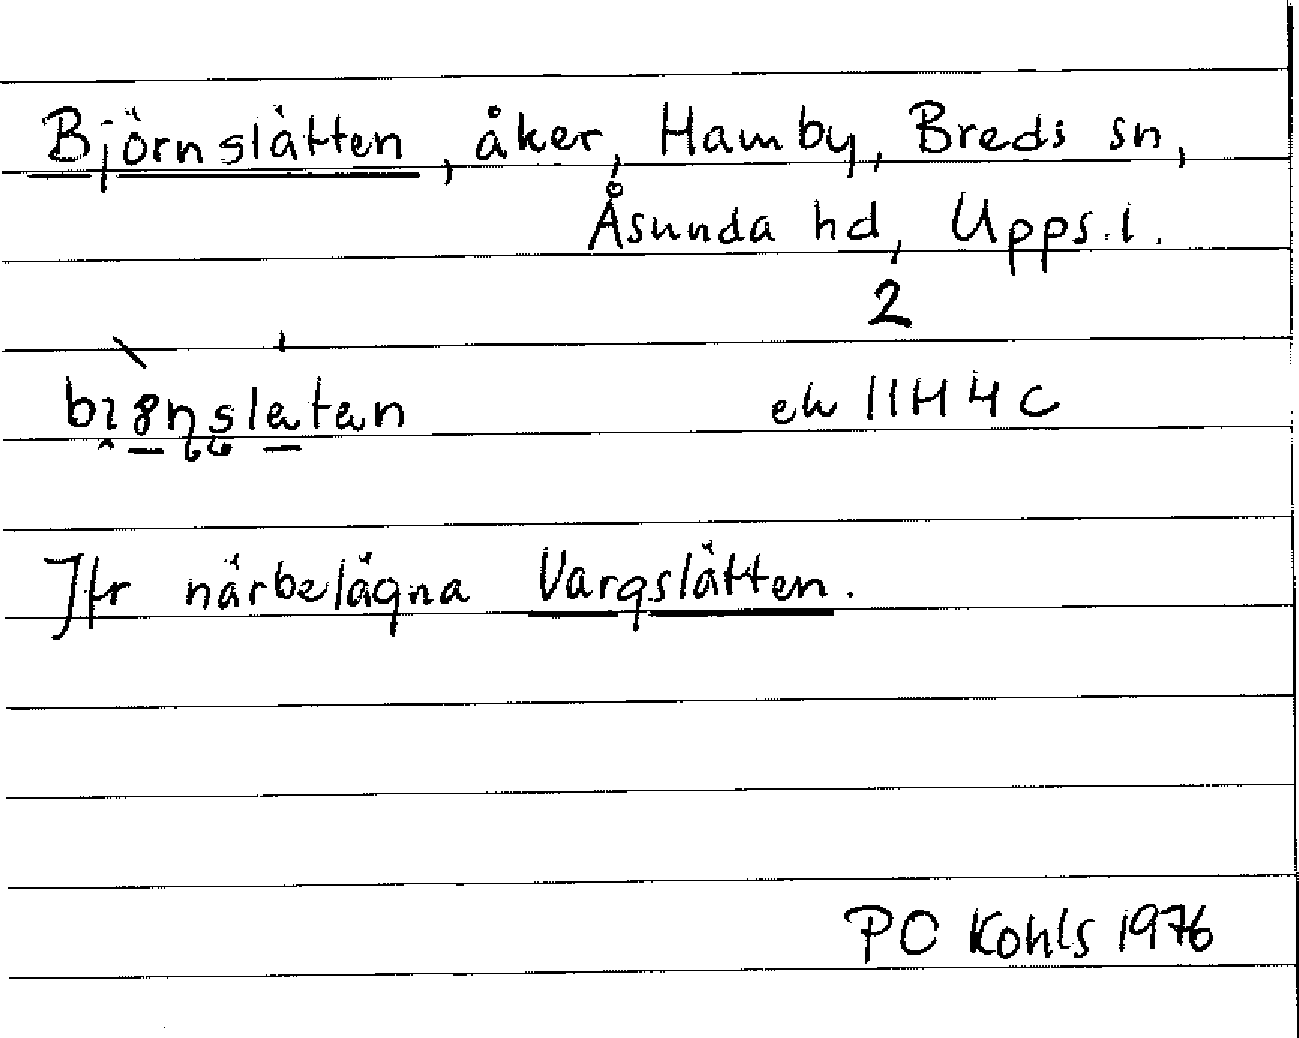 Björnslätten, åker, Hamby, Breds sn,
Åsunda hd, Upps. l.
2
bi̯ø̱nsla̱tan ek 11H 4c
Jfr närbelägna Vargslätten.
PC Kohls 1976